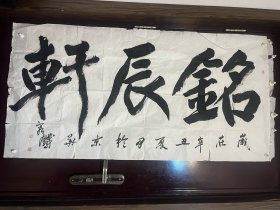 銘辰軒
歲在辛丑夏月於京